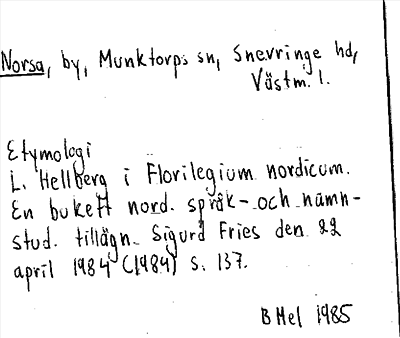 Norsa, by, Munktorps sn, Snevringe hd,
Västm. l.
Etymologi
L. Hellberg i Florilegium nordicum.
En bukett nord. språk- och namn-
stud. tillägn. Sigurd Fries den 22
april 1984 (1984) s. 137.
B Mel 1985